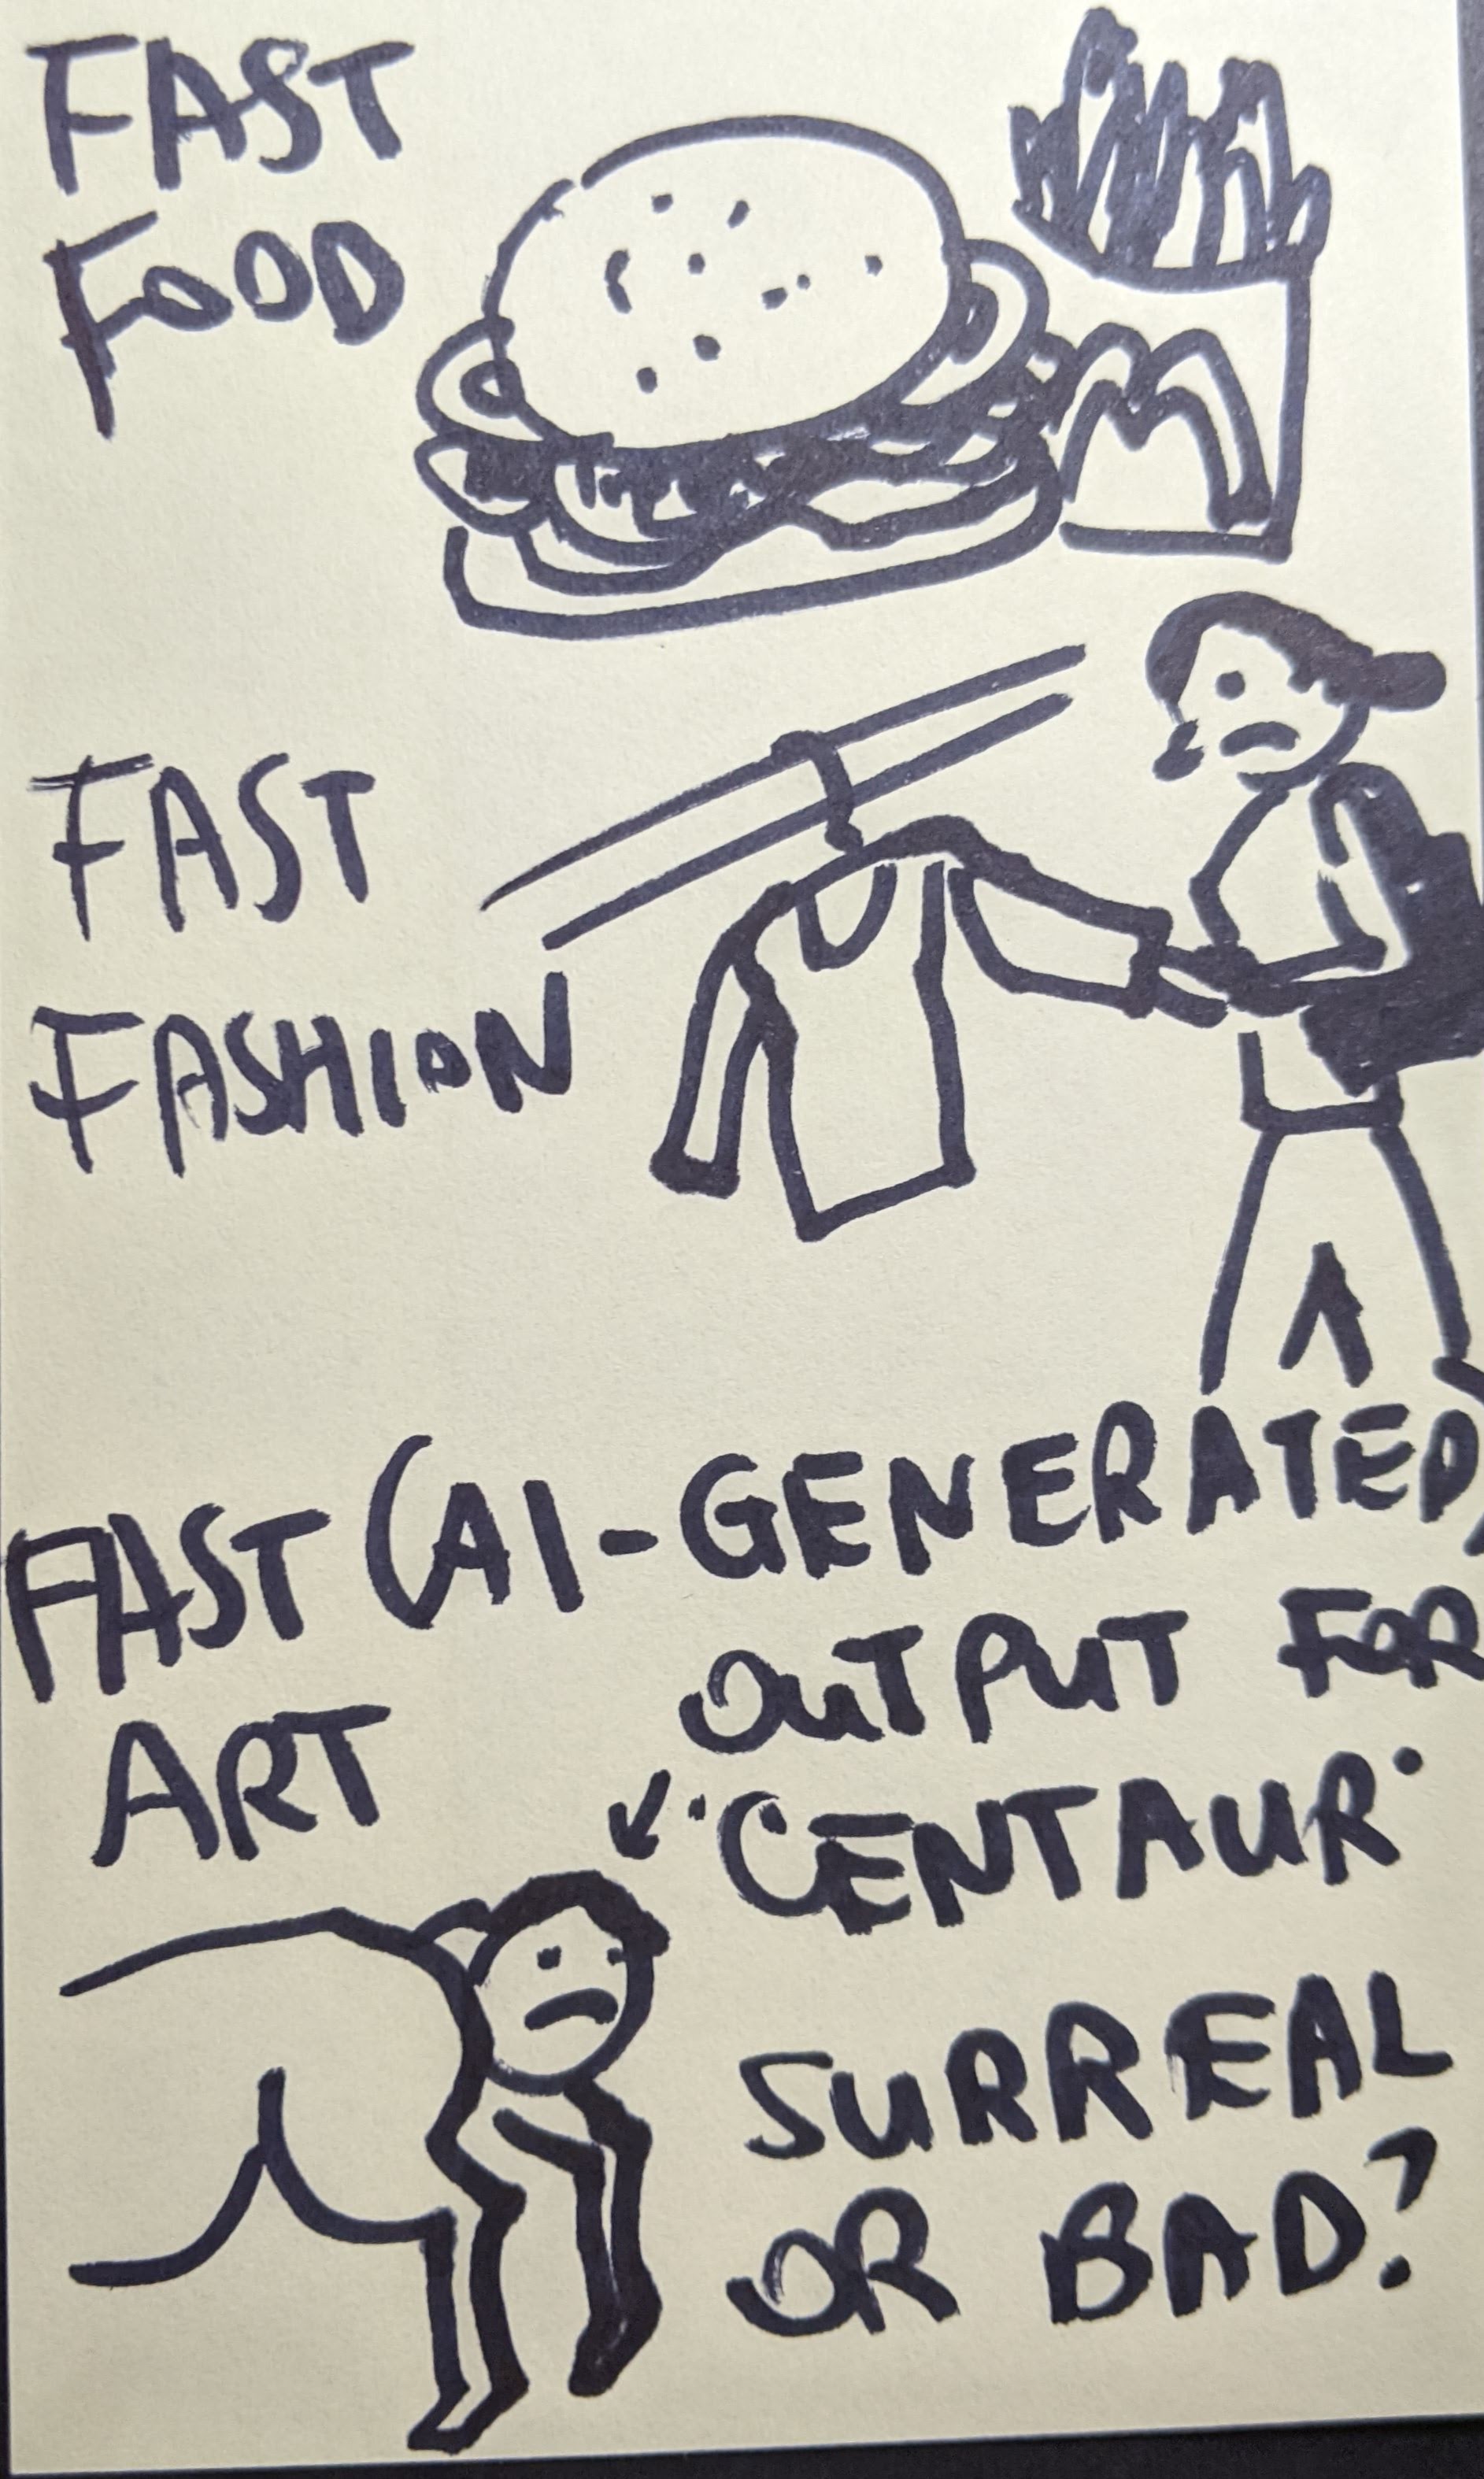 FAST
FOOD
M
FAST
FASHION
FAST (AI-GENERATED)
ART
OUTPUT FOR
"CENTAUR"
SURREAL
OR BAD?